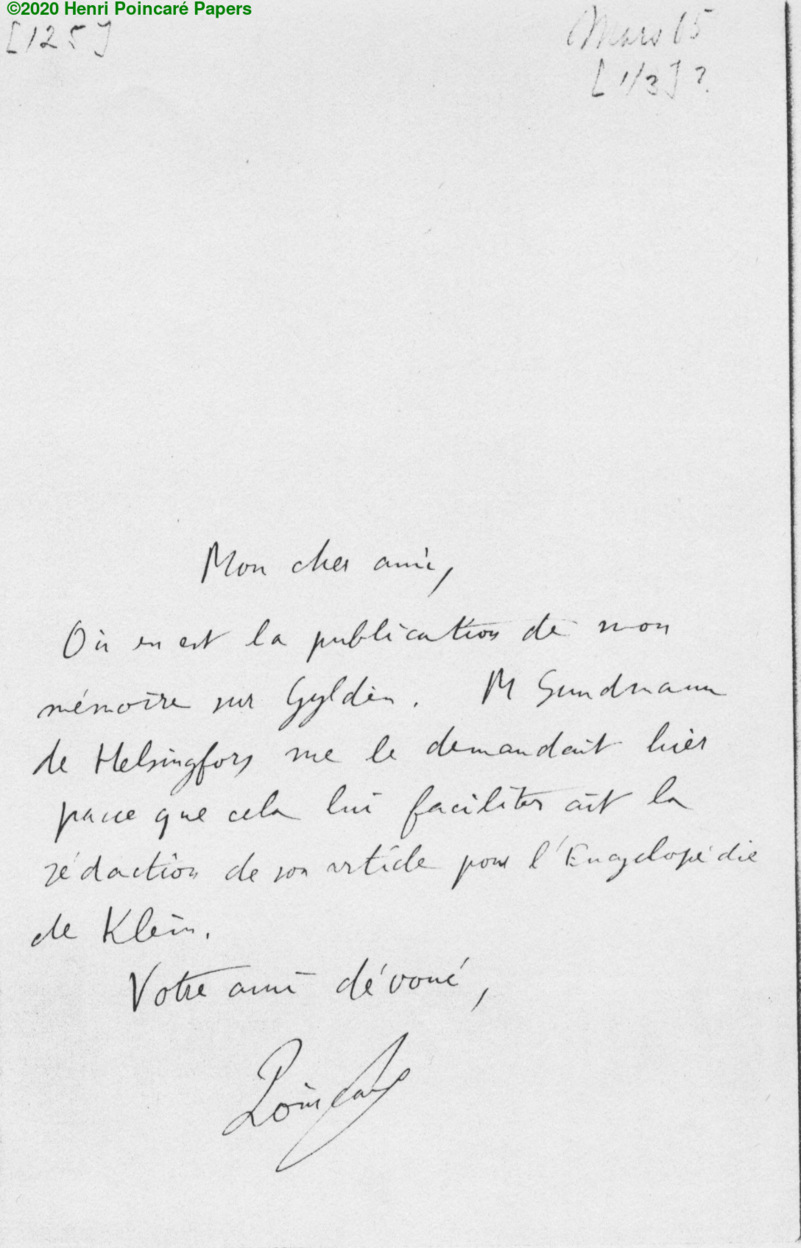 ©2020 Henri Poincaré Papers
[125]
Mars 05
[1/3]?
Mon cher ami,
Où en est la publication de mon
mémoire sur Gyldèn. M Sundmann
de Helsingfors me le demandait hier
parce que cela lui faciliterait la
rédaction de son article pour l'Encyclopédie
de Klein.
Votre ami dévoué,
Poincaré